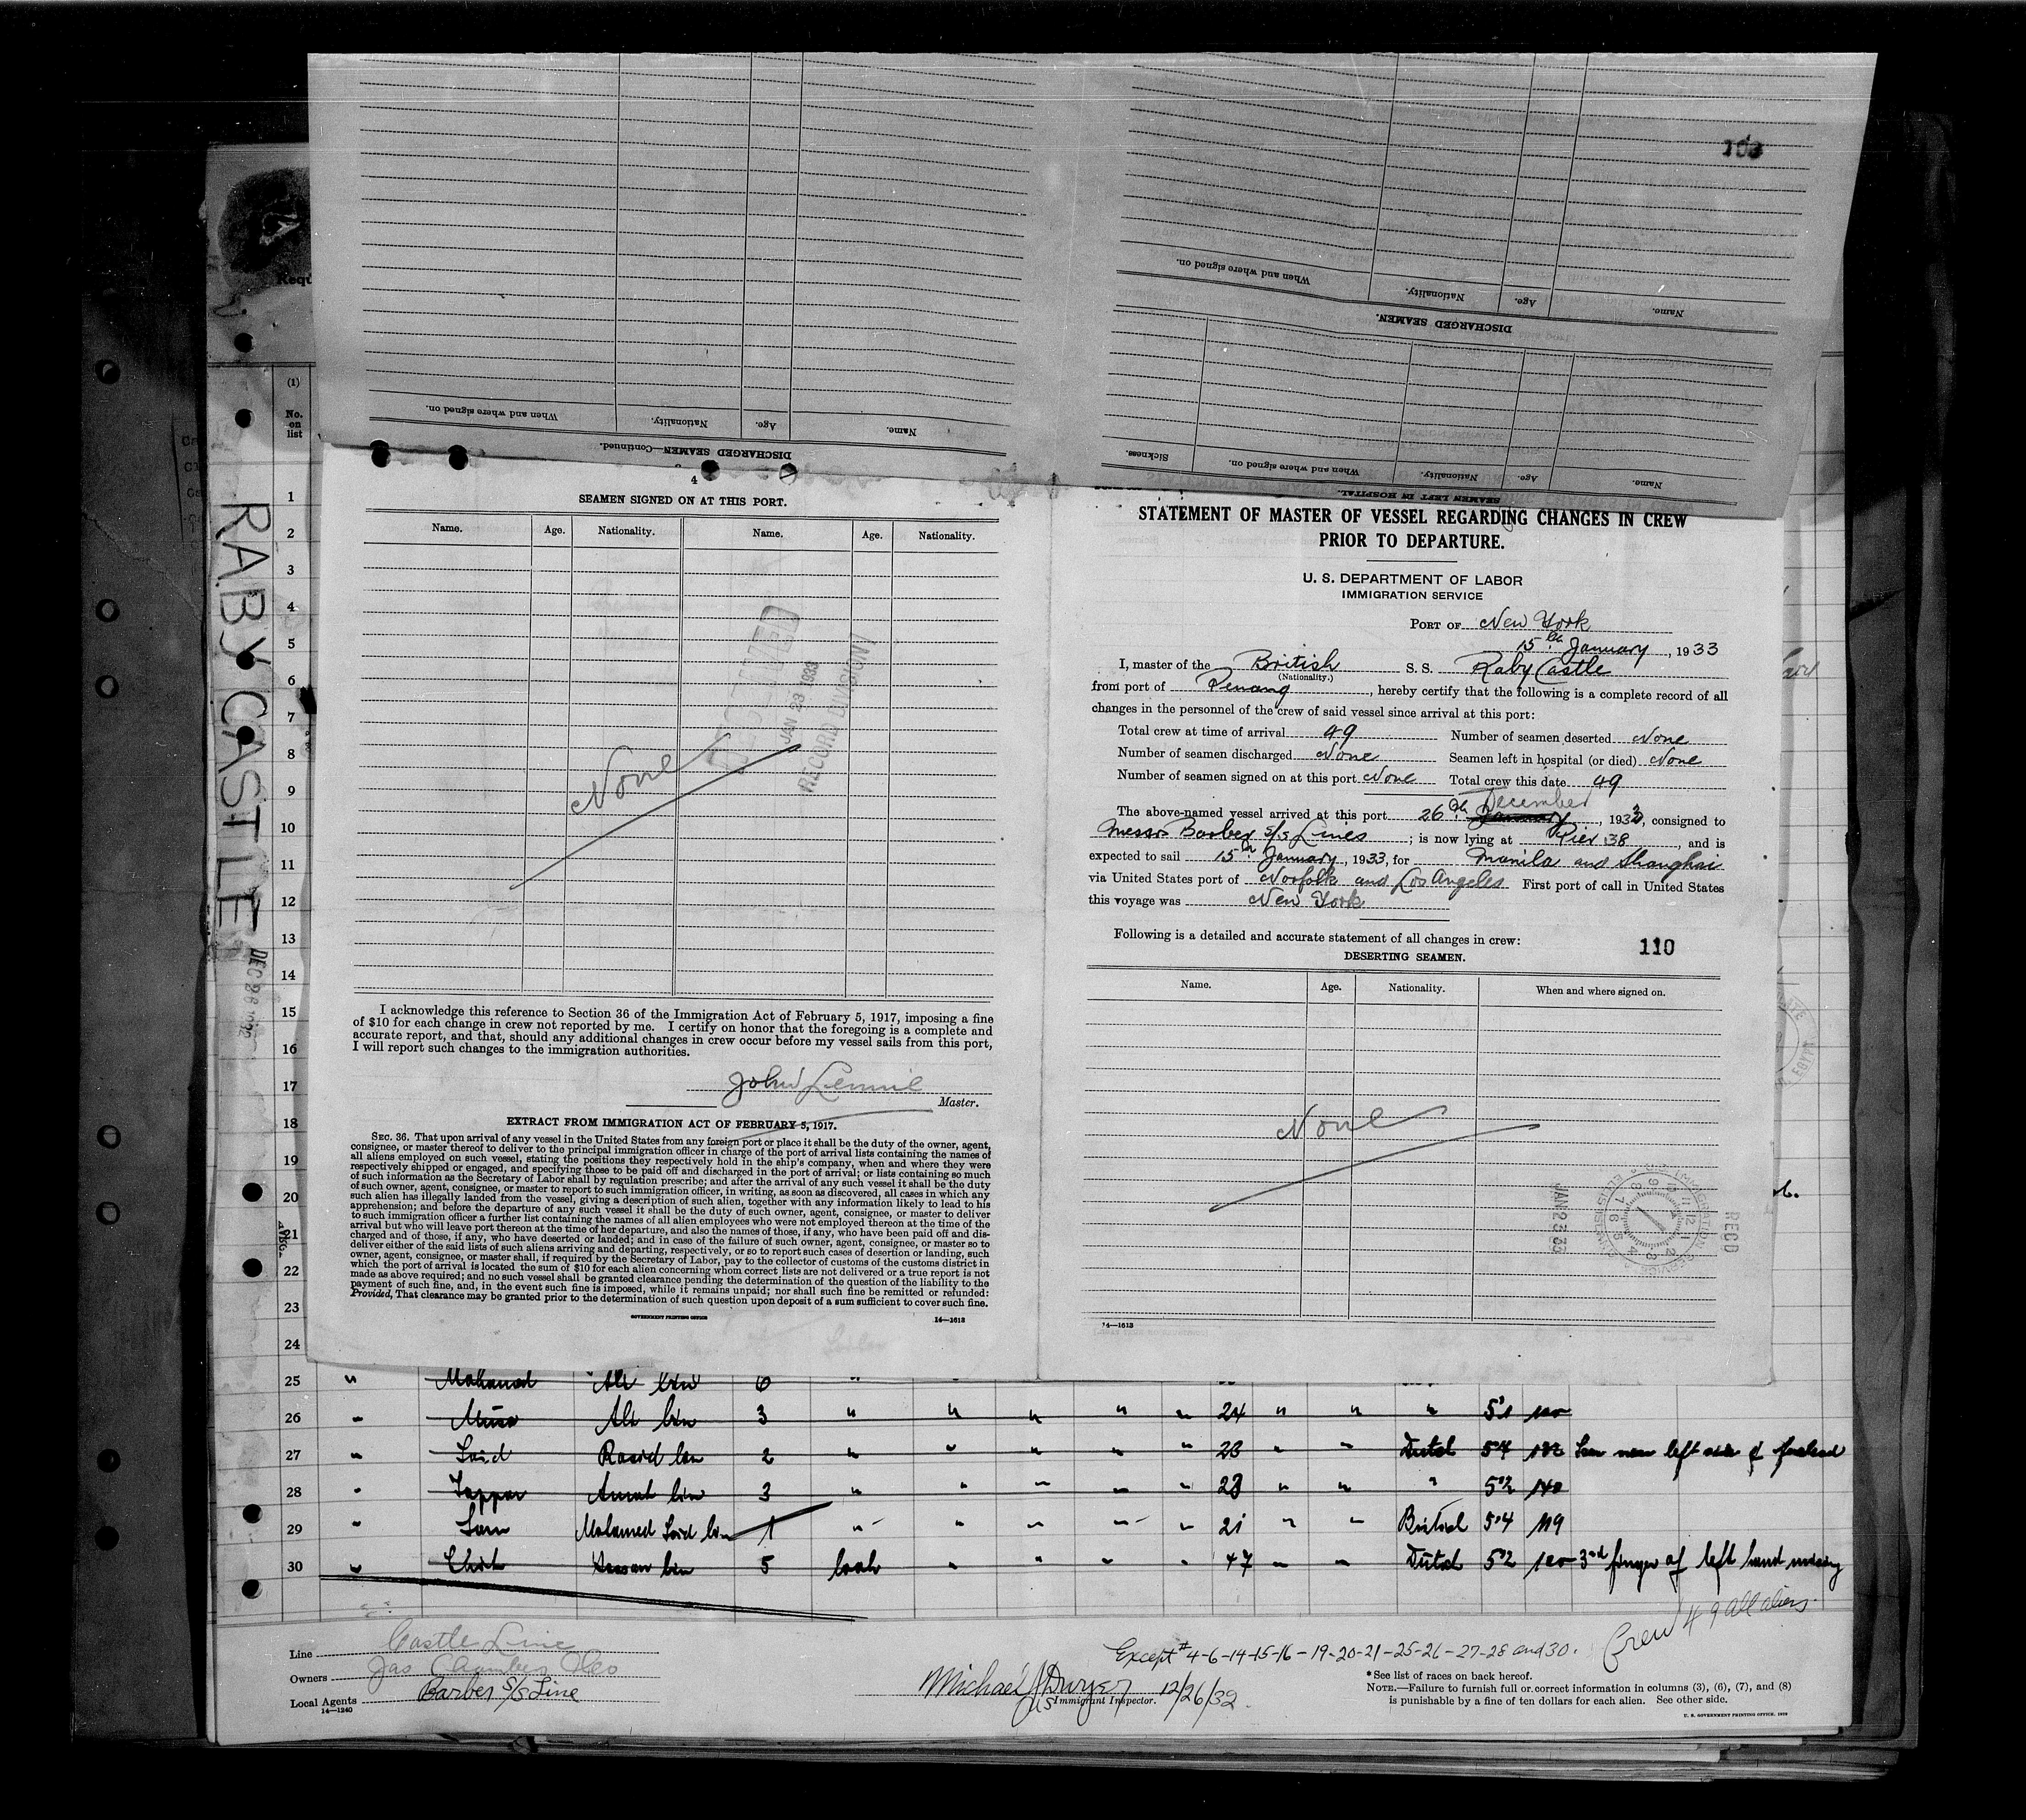 103
When and where signed on.
Nationality.
Age.
Name.
DISCHARGED SEAMEN—Continued.
When and where signed on.
Nationality.
Age.
Name.
DISCHARGED SEAMEN.
Sickness.
When and where signed on.
Nationality.
Age.
Name.
SEAMEN LEFT IN HOSPITAL.
Requ
(1)
No.
on
list
RABY CASTLE
DEC 26 1932
4
SEAMEN SIGNED ON AT THIS PORT.
Name. Age. Nationality. Name. Age. Nationality.
None
RECEIVED
JAN 23 1933
RECORD DIVISION
I acknowledge this reference to Section 36 of the Immigration Act of February 5, 1917, imposing a fine
of $10 for each change in crew not reported by me. I certify on honor that the foregoing is a complete and
accurate report, and that, should any additional changes in crew occur before my vessel sails from this port,
I will report such changes to the immigration authorities.
John Lennie
Master.
EXTRACT FROM IMMIGRATION ACT OF FEBRUARY 5, 1917.
SEC. 36. That upon arrival of any vessel in the United States from any foreign port or place it shall be the duty of the owner, agent,
consignee, or master thereof to deliver to the principal immigration officer in charge of the port of arrival lists containing the names of
all aliens employed on such vessel, stating the positions they respectively hold in the ship's company, when and where they were
respectively shipped or engaged, and specifying those to be paid off and discharged in the port of arrival; or lists containing so much
of such information as the Secretary of Labor shall by regulation prescribe; and after the arrival of any such vessel it shall be the duty
of such owner, agent, consignee, or master to report to such immigration officer, in writing, as soon as discovered, all cases in which any
such alien has illegally landed from the vessel, giving a description of such alien, together with any information likely to lead to his
apprehension; and before the departure of any such vessel it shall be the duty of such owner, agent, consignee, or master to deliver
to such immigration officer a further list containing the names of all alien employees who were not employed thereon at the time of the
arrival but who will leave port thereon at the time of her departure, and also the names of those, if any, who have been paid off and dis-
charged and of those, if any, who have deserted or landed; and in case of the failure of such owner, agent, consignee, or master so to
deliver either of the said lists of such aliens arriving and departing, respectively, or so to report such cases of desertion or landing, such
owner, agent, consignee, or master shall, if required by the Secretary of Labor, pay to the collector of customs of the customs district in
which the port of arrival is located the sum of $10 for each alien concerning whom correct lists are not delivered or a true report is not
made as above required; and no such vessel shall be granted clearance pending the determination of the question of the liability to the
payment of such fine, and, in the event such fine is imposed, while it remains unpaid; nor shall such fine be remitted or refunded:
Provided, That clearance may be granted prior to the determination of such question upon deposit of a sum sufficient to cover such fine.
GOVERNMENT PRINTING OFFICE
14—1613
STATEMENT OF MASTER OF VESSEL REGARDING CHANGES IN CREW
PRIOR TO DEPARTURE.
U. S. DEPARTMENT OF LABOR
IMMIGRATION SERVICE
PORT OF New York
15th January, 1933
I, master of the British S. S. Raby Castle
(Nationality.)
from port of Penang, hereby certify that the following is a complete record of all
changes in the personnel of the crew of said vessel since arrival at this port:
Total crew at time of arrival 49 Number of seamen deserted None
Number of seamen discharged None Seamen left in hospital (or died) None
Number of seamen signed on at this port None Total crew this date 49
December
The above-named vessel arrived at this port 26th January, 1932, consigned to
Messrs Barber S/S Lines; is now lying at Pier 38, and is
expected to sail 15th January, 1933, for Manila and Shanghai
via United States port of Norfolk and Los Angeles First port of call in United States
this voyage was New York
Following is a detailed and accurate statement of all changes in crew:
110
DESERTING SEAMEN.
Name. Age. Nationality. When and where signed on.
None
JAN 23 33
RECD
14—1613
EGYPT
1
2
3
4
5
6
7
8
9
10
11
12
13
14
15
16
17
18
19
20
21
22
23
24
25 " Mohamed Ali bin 6 "
26 " Musa Ali bin 3 " " " " " 24 " " " 5'1 100
27 " Said Rasid bin 2 " " " " " 23 " " Dutch 5'4 132 Scar near left side of forehead
28 " Jappar Amat bin 3 " " " " " 23 " " " 5'2 140
29 " Sam Mohamed Said bin 1 " " " " " 21 " " British 5'4 119
30 " Chik Hassan bin 5 Cook " " " " 47 " " Dutch 5'2 120 3rd finger of left hand missing
Crew 49 all aliens.
Except # 4-6-14-15-16-19-20-21-25-26-27-28 and 30.
Line Castle Line
Owners Jas Chambers & Co
Local Agents Barber S/S Line
14—1240
Michael J Dwyer 12/26/32.
US Immigrant Inspector.
*See list of races on back hereof.
NOTE.—Failure to furnish full or correct information in columns (3), (6), (7), and (8)
is punishable by a fine of ten dollars for each alien. See other side.
U. S. GOVERNMENT PRINTING OFFICE